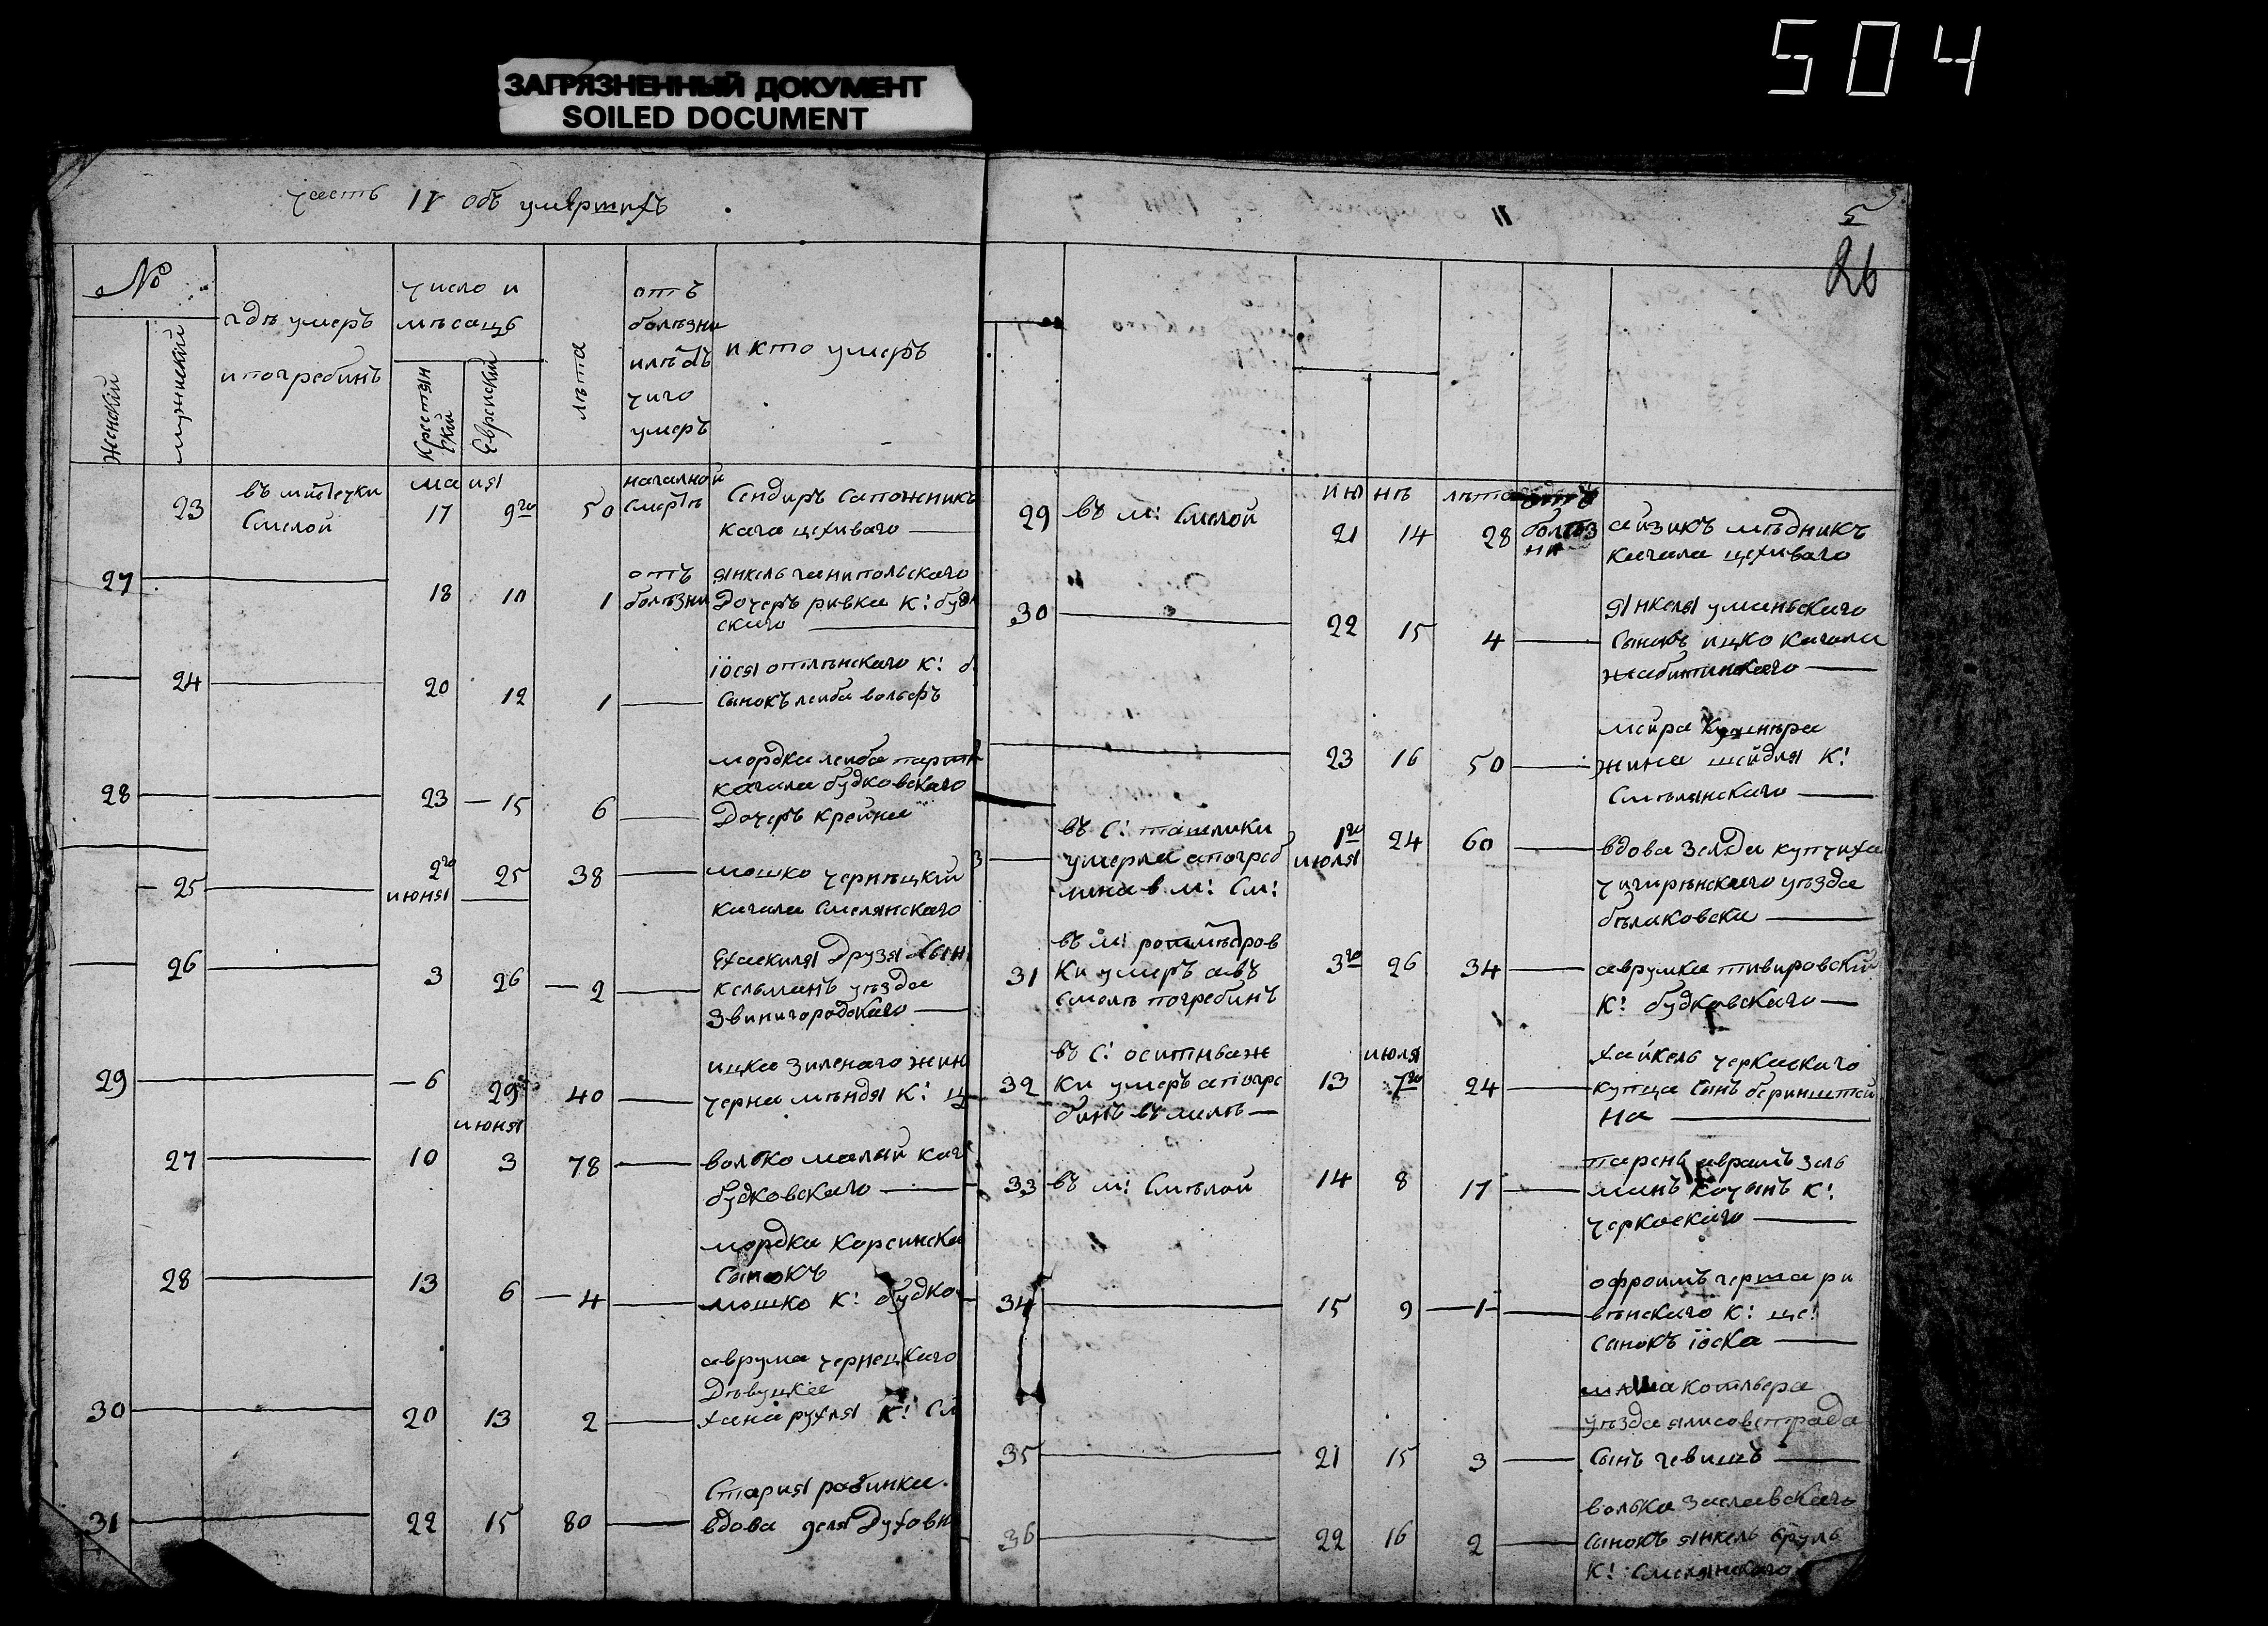 504
ЗАГРЯЗНЕННЫЙ ДОКУМЕНТ
SOILED DOCUMENT
часть II объ умертихъ
№
Женский
мужнский
гдѣ умеръ
и погребинъ
число и
мѣсацъ
Крестян
ский
Еврейский
лѣта
отъ
болѣзни
илѣ отъ
чиго
умеръ
и кто умеръ
23 въ мистечки майя началной Сендиръ сапожникъ
Смелой 17 9го 50 смертъ
кагала цехиваго
27 18 10 1 отъ болѣзни янкель ганипольскаго
дочеръ ривка К: будк
скаго
24 20 12 1 іося
сынокъ лейба вольфъ
28 23 15 6 мордка лейба
кагала будковскаго
дочеръ крейна
25 2го июня 25 38 мошко чернѣцкий
кагала Смелянскаго
26 3 26 2 друзя сын
кельманъ уѣзда
звинигородскаго
29 6 29 40 ицка зиленаго жин
черна мѣндя К: ц
июня
27 10 3 78 волько малый каг
будковскаго
28 13 6 4 мордка корсинска
сынокъ
мошко К: будко
30 20 13 2 аврума чернецкаго
дѣвушка
хана рухля К: См
31 22 15 80 Стария рабинка
вдова деля духовн
5
26
июнѣ лѣта
29 въ м: Смелой 21 14 28 болѣз
ни
айзикъ мѣдникъ
кагала цехиваго
30 22 15 4 Янкеля уманьскаго
сынокъ ицко кагала
жаботинскаго
23 16 50 мейра кушнѣра
жина шейдля К:
Смѣлянскаго
въ С: ташлики
умерла а погреб
лина в м: См:
1го июля 24 60 вдова зелда купчиха
чигирѣнскаго уѣзда
бѣлаковски
31 въ м: ротмѣстров
ки умеръ а въ
смелѣ погребинъ
3го 26 34 аврумка тивировский
К: будковскаго
32 въ С: оситнѣаж
ки умеръ а погре
бинъ въ
13 июля 7го 24 хайкель черкаскаго
купца сынъ беринштей
на
33 въ м: Смѣлой 14 8 17 парень аврамъ зель
манъ К:
черкаскаго
34 15 9 1 офроимъ герша ри
вѣнскаго К: це:
сынокъ іоска
35 21 15 3 котляра
уѣзда
сынъ гевишъ
36 22 16 2 волька заславскаго
сынокъ янкель сруль
К: Смелянскаго